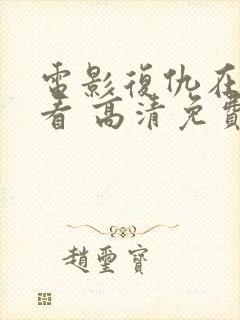 電影復仇在
看 高清免費
趙璽寶